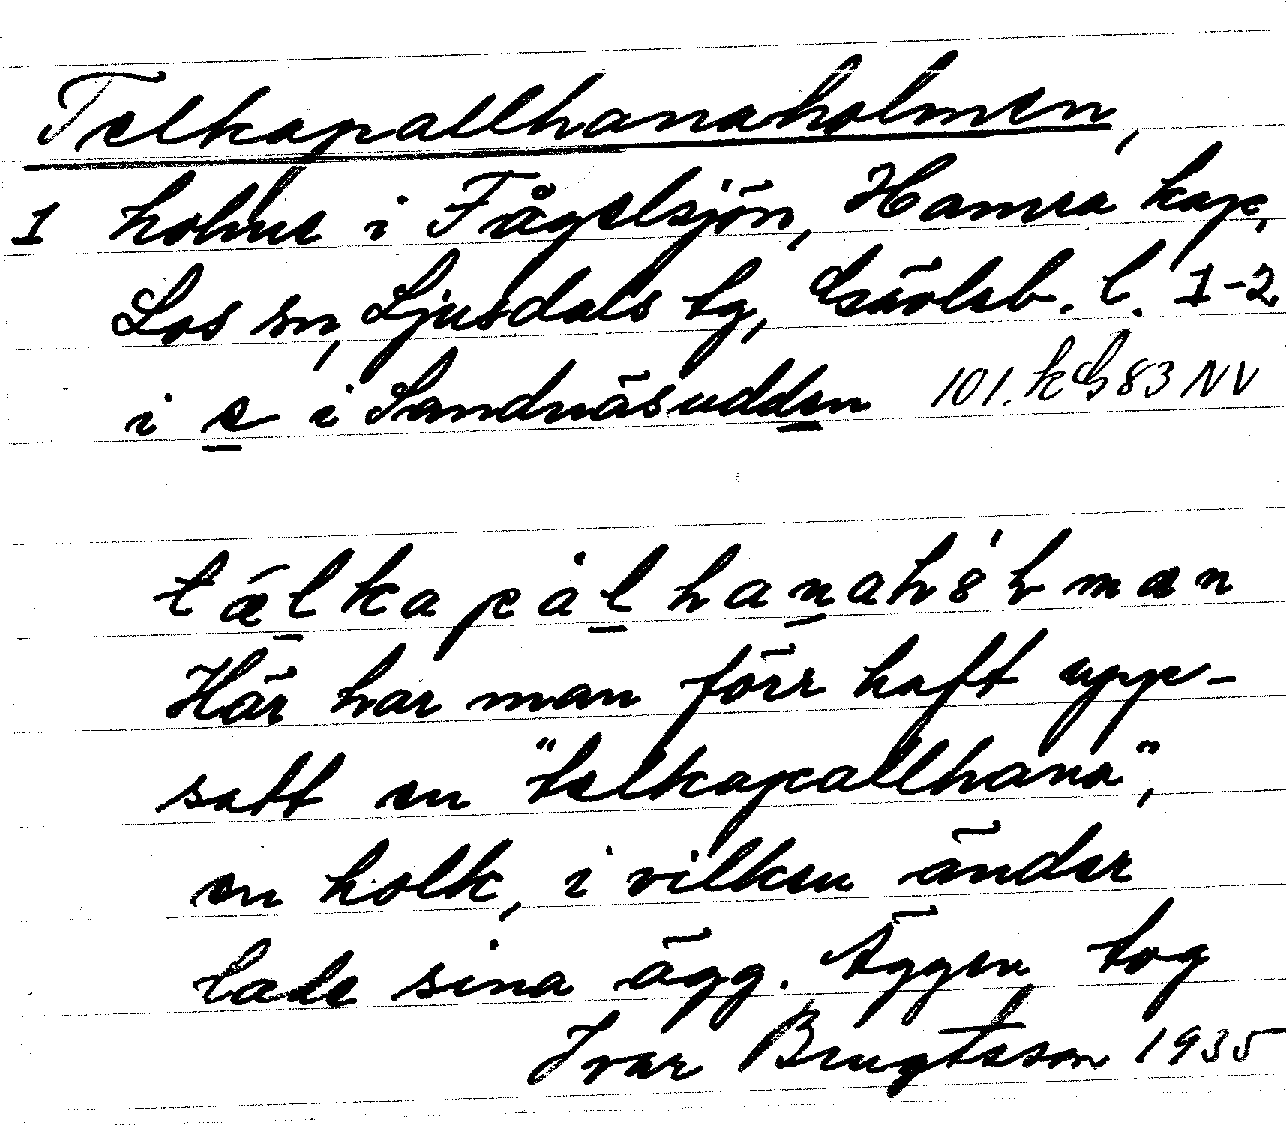 Telkapallhanaholmen,
1 holme i Fågelsjön, Hamra kap,
Los sn, Ljusdals tg, Gävleb. l. 1-2
i e i Sandnäsudden 101. kb 83 NV
Här har man förr haft upp-
satt en "telkapallhana",
en holk, i vilken änder
lade sina ägg. Äggen tog
Ivar Bengtsson 1935